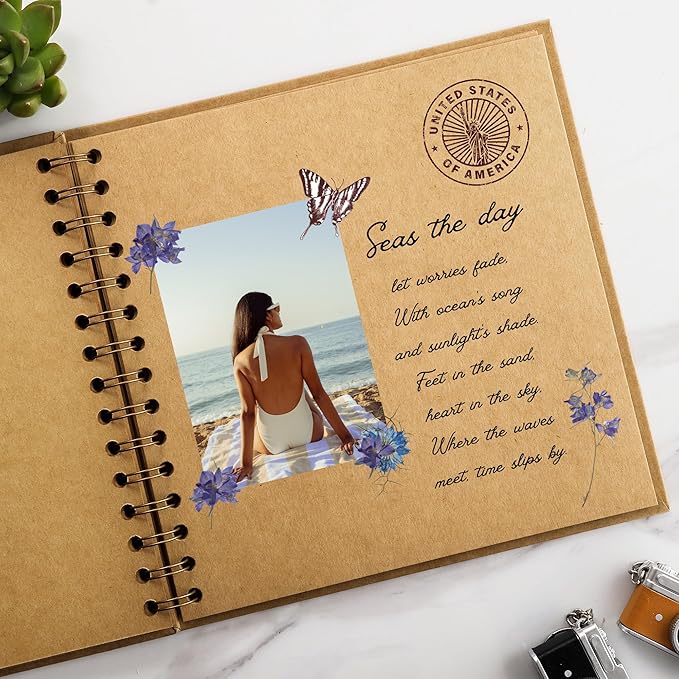 UNITED STATES
OF AMERICA
Seas the day
let worries fade,
With ocean's song
and sunlight's shade.
Feet in the sand,
heart in the sky,
Where the waves
meet, time slips by.